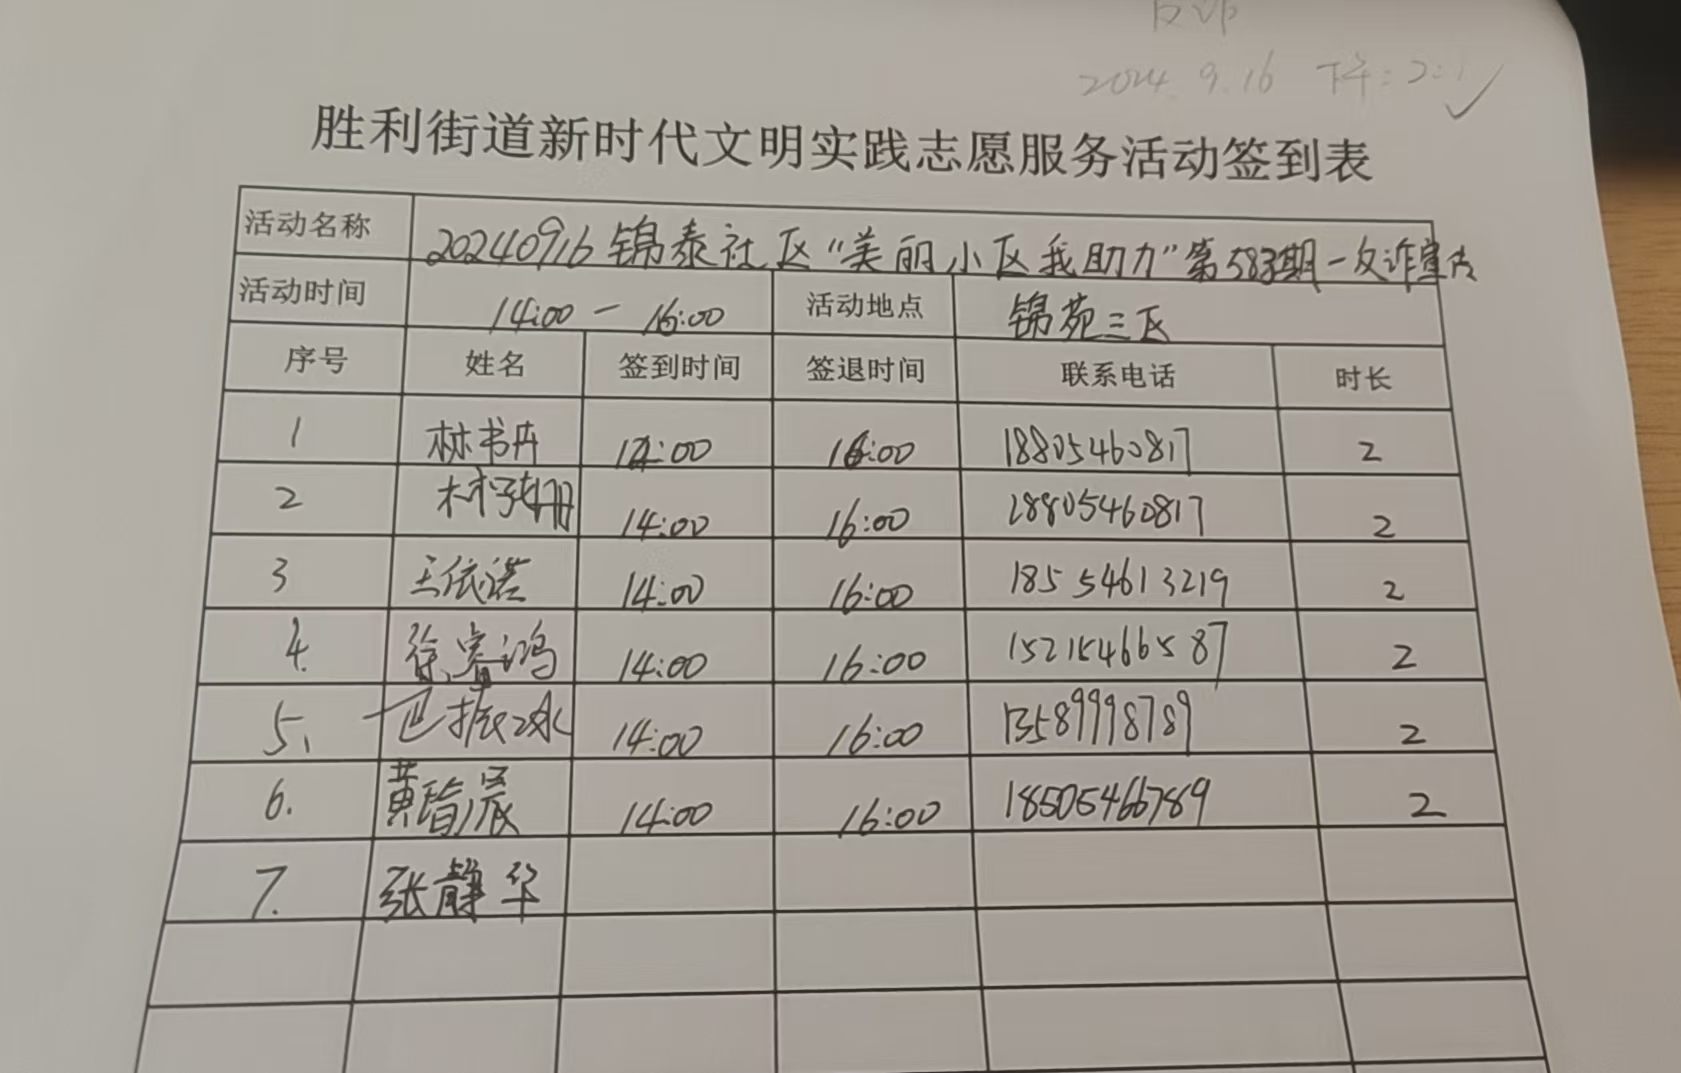 反诈
2024.9.16 下午:2:
胜利街道新时代文明实践志愿服务活动签到表
活动名称 20240916锦泰社区“美丽小区我助力”第583期-反诈宣传
活动时间 14:00-16:00 活动地点 锦苑三区
序号 姓名 签到时间 签退时间 联系电话 时长
1 林书丹 14:00 16:00 18805460817 2
2 16:00 14:00 18805460817 2
3 王依诺 14:00 16:00 18554613219 2
4. 徐睿鸿 14:00 16:00 15215466587 2
5、 14:00 16:00 13589998789 2
6. 黄晨 14:00 16:00 18505466789 2
7. 张静华